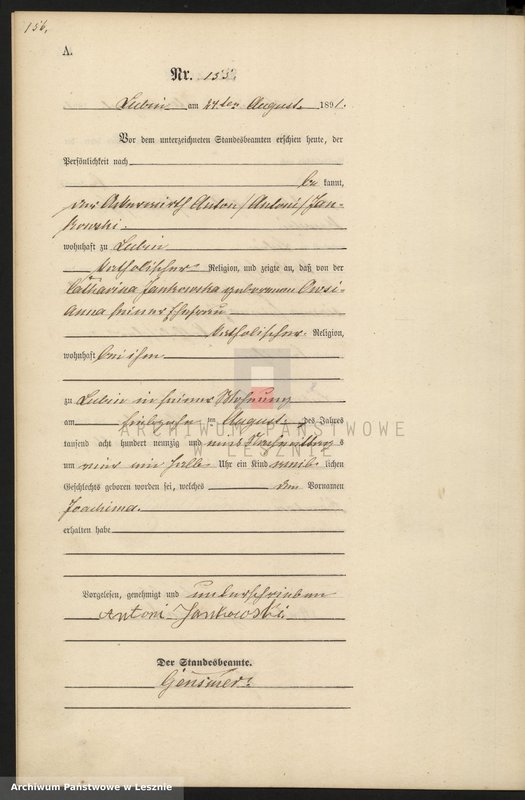 156.
A.
Nr. 155.
Lubin am 24ten August 1891.
Vor dem unterzeichneten Standesbeamten erschien heute, der
Persönlichkeit nach
be kannt,
der Ackerwirth Anton /Antoni/ Jan-
kowski
wohnhaft zu Lubin
katholischer Religion, und zeigte an, daß von der
Catharina Jankowska geborenen
seiner Ehefrau
katholischer Religion,
wohnhaft bei ihm
zu Lubin in seiner Wohnung
am ten August des Jahres
tausend acht hundert neunzig und eins Nachmittag s
um vier ein halb Uhr ein Kind weib lichen
Geschlechts geboren worden sei, welches den Vornamen
Joachima.
erhalten habe
Vorgelesen, genehmigt und unterschrieben
Antoni Jankowski
Der Standesbeamte.
ARCHIWUM PAŃSTWOWE
W LESZNIE
Archiwum Państwowe w Lesznie